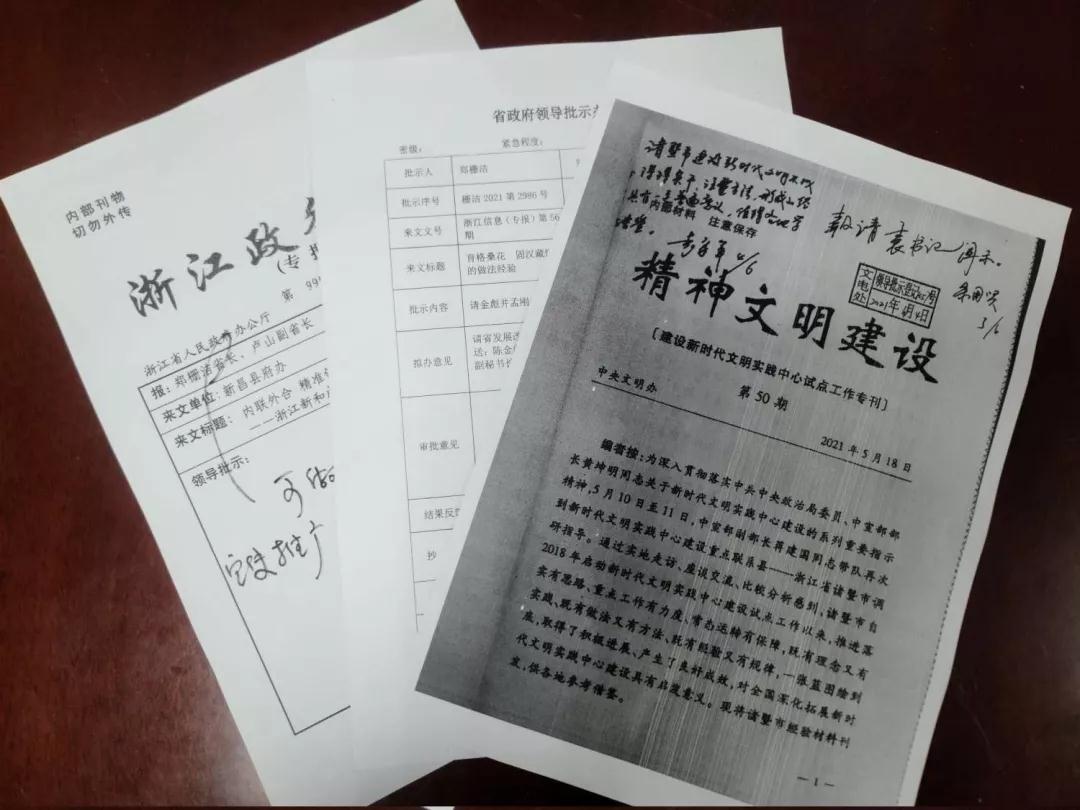 内部刊物
切勿外传
浙江政
(专报
第 99
浙江省人民政府办公厅
报: 郑栅洁省长、卢山副省长
来文单位: 新昌县府办
来文标题: 内联外合 精准
——浙江新和
领导批示:
推广
省政府领导批示
密级: 紧急程度:
批示人 郑栅洁
批示序号 栅洁 2021 第 2986 号
来文文号 浙江信息(专报)第 56
期
来文标题 育格桑花 固汉藏
的做法经验
批示内容 请金彪并孟刚
拟办意见 请省发展
送: 陈金
副秘书长
审批意见
结果反
抄
诸暨市建设新时代文明实践
内部材料 注意保存
报请袁书记阅示。
文电处 领导批示登记
2021年6月4日
精神文明建设
〔建设新时代文明实践中心试点工作专刊〕
第 50 期
中央文明办 2021 年 5 月 18 日
编者按:为深入贯彻落实中共中央政治局委员、中宣部部
长黄坤明同志关于新时代文明实践中心建设的系列重要指示
精神,5 月 10 日至 11 日,中宣部副部长蒋建国同志带队再次
到新时代文明实践中心建设重点联系县——浙江省诸暨市调
研指导。通过实地走访、座谈交流、比较分析感到,诸暨市自
2018 年启动新时代文明实践中心建设试点工作以来,推进落
实有思路、重点工作有力度、常态运转有保障,既有理念又有
实践、既有做法又有方法、既有经验又有规律,一张蓝图绘到
底,取得了积极进展、产生了良好成效,对全国深化拓展新时
代文明实践中心建设具有启发意义。现将诸暨市经验材料刊
发,供各地参考借鉴。
— 1 —